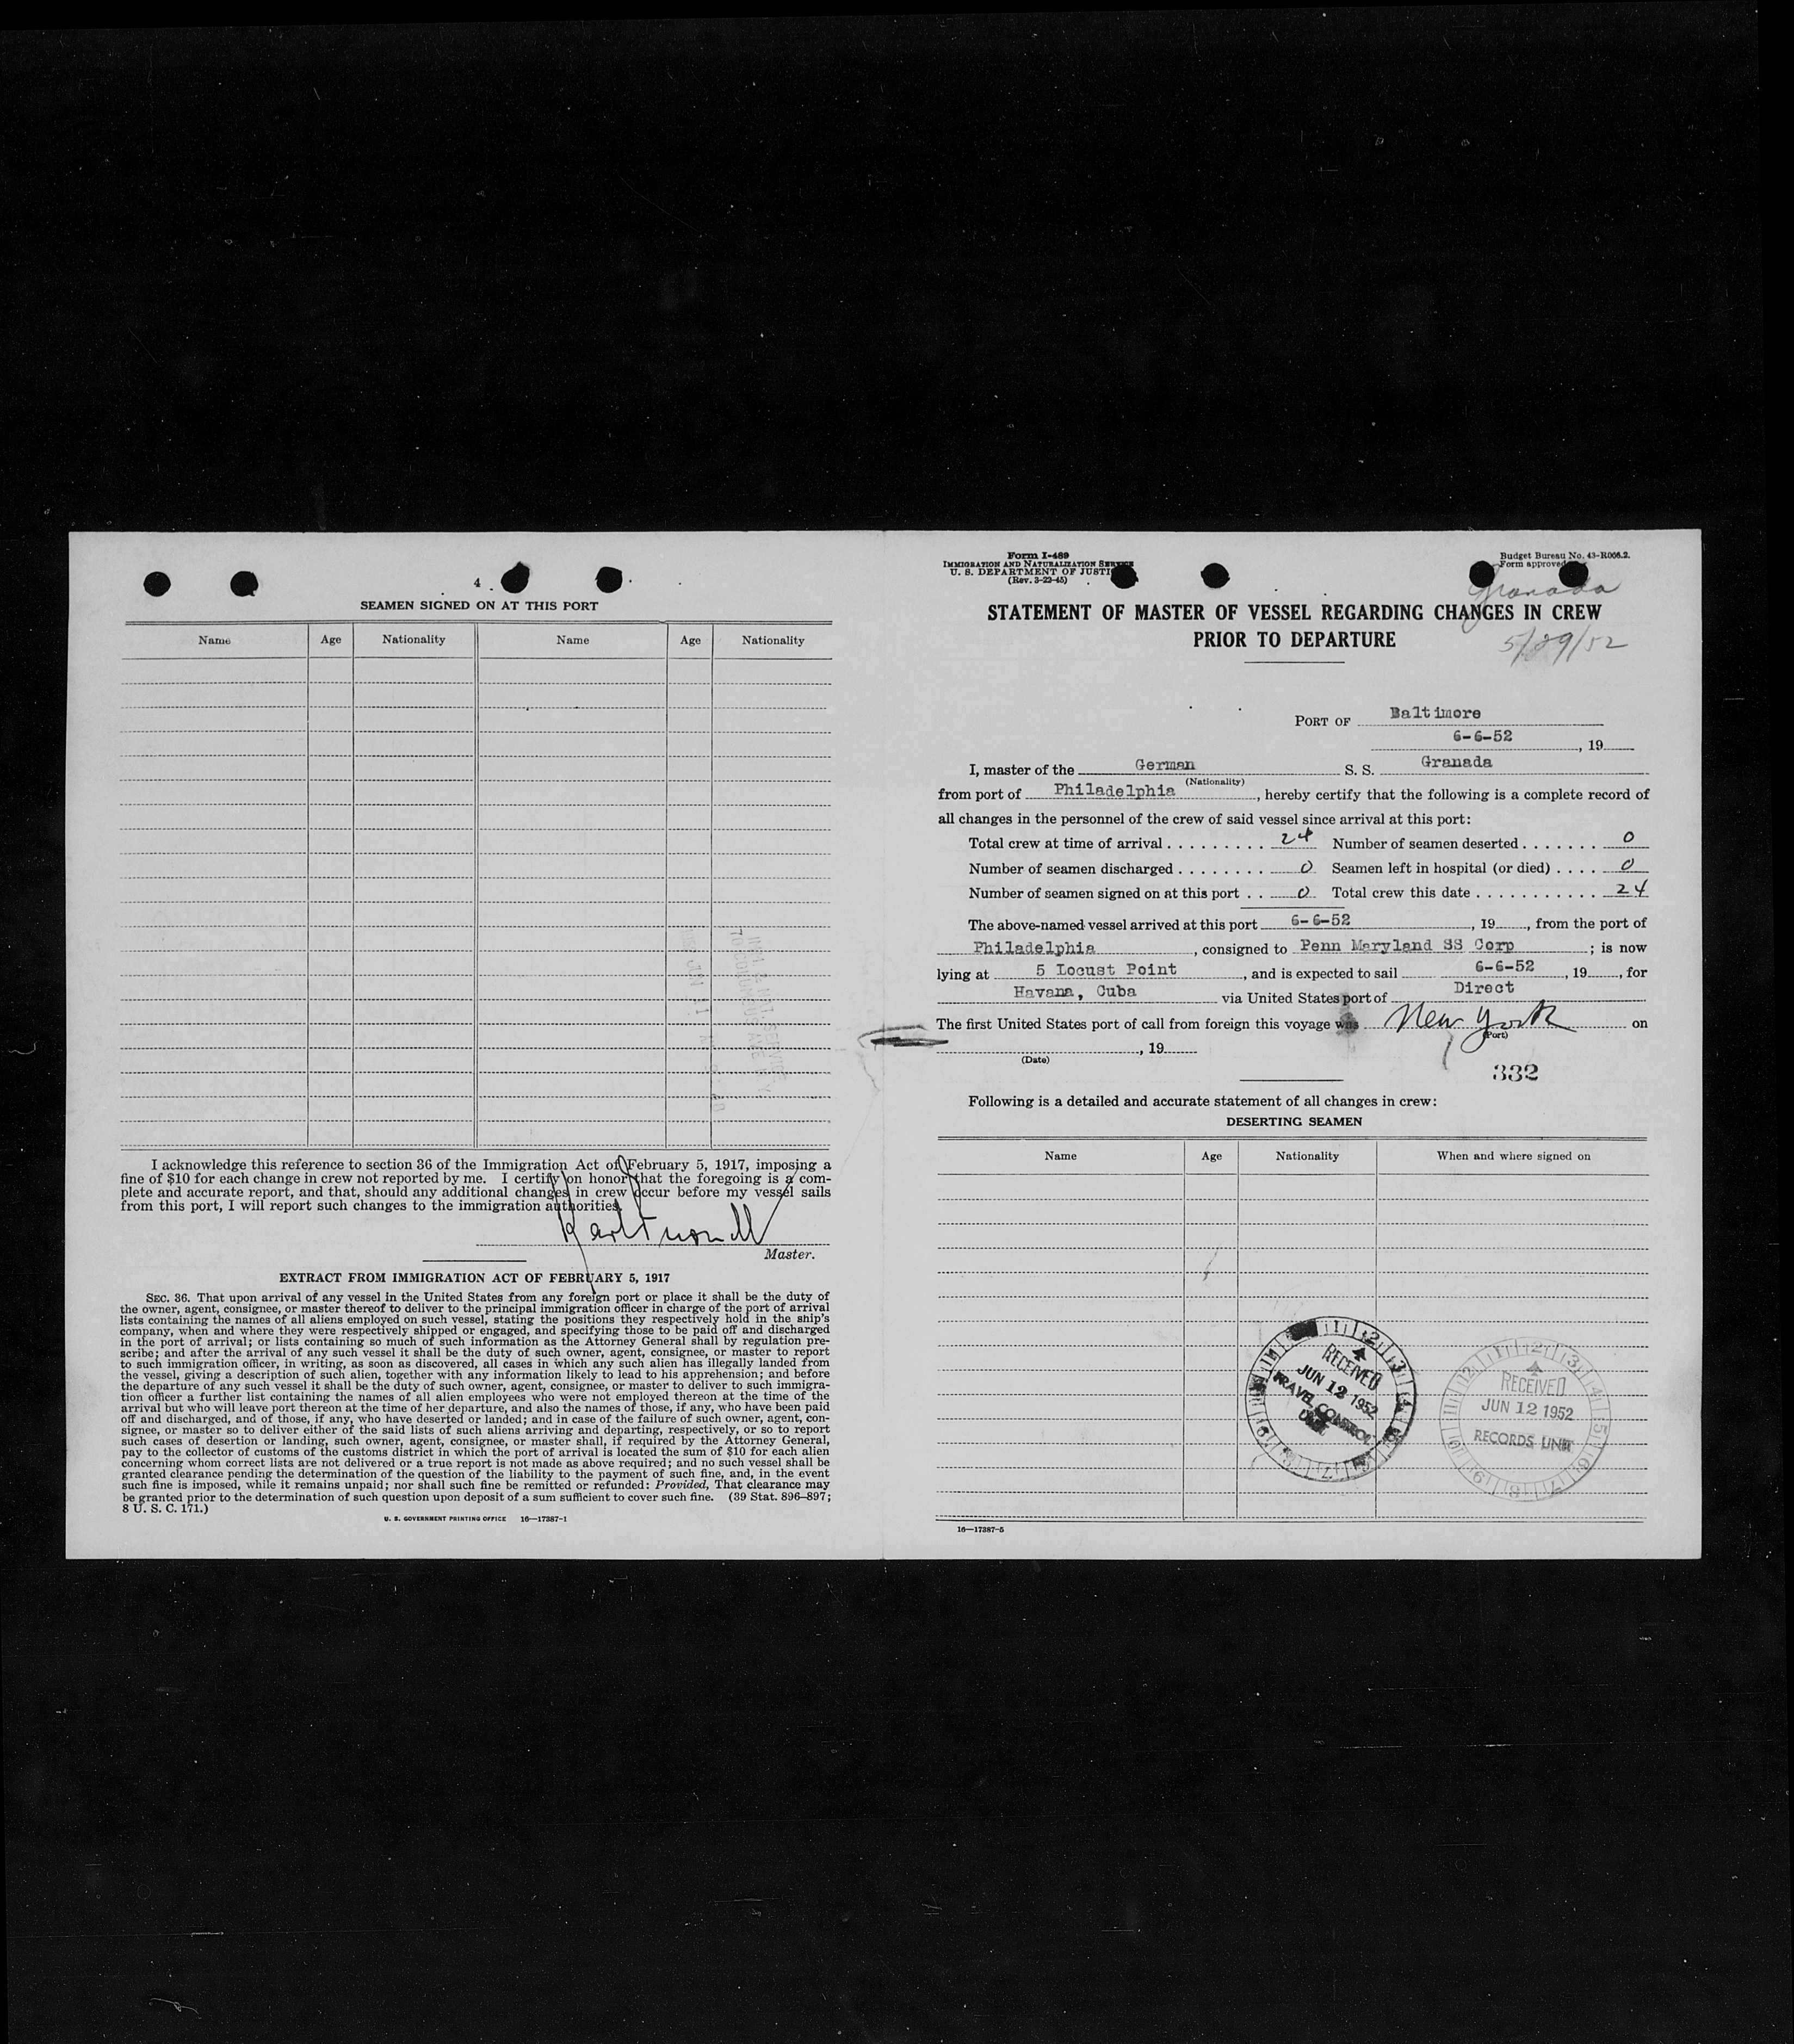 4
SEAMEN SIGNED ON AT THIS PORT
Name Age Nationality Name Age Nationality
I acknowledge this reference to section 36 of the Immigration Act of February 5, 1917, imposing a
fine of $10 for each change in crew not reported by me. I certify on honor that the foregoing is a com-
plete and accurate report, and that, should any additional changes in crew occur before my vessel sails
from this port, I will report such changes to the immigration authorities.
Master.
EXTRACT FROM IMMIGRATION ACT OF FEBRUARY 5, 1917
SEC. 36. That upon arrival of any vessel in the United States from any foreign port or place it shall be the duty of
the owner, agent, consignee, or master thereof to deliver to the principal immigration officer in charge of the port of arrival
lists containing the names of all aliens employed on such vessel, stating the positions they respectively hold in the ship's
company, when and where they were respectively shipped or engaged, and specifying those to be paid off and discharged
in the port of arrival; or lists containing so much of such information as the Attorney General shall by regulation pre-
scribe; and after the arrival of any such vessel it shall be the duty of such owner, agent, consignee, or master to report
to such immigration officer, in writing, as soon as discovered, all cases in which any such alien has illegally landed from
the vessel, giving a description of such alien, together with any information likely to lead to his apprehension; and before
the departure of any such vessel it shall be the duty of such owner, agent, consignee, or master to deliver to such immigra-
tion officer a further list containing the names of all alien employees who were not employed thereon at the time of the
arrival but who will leave port thereon at the time of her departure, and also the names of those, if any, who have been paid
off and discharged, and of those, if any, who have deserted or landed; and in case of the failure of such owner, agent, con-
signee, or master so to deliver either of the said lists of such aliens arriving and departing, respectively, or so to report
such cases of desertion or landing, such owner, agent, consignee, or master shall, if required by the Attorney General,
pay to the collector of customs of the customs district in which the port of arrival is located the sum of $10 for each alien
concerning whom correct lists are not delivered or a true report is not made as above required; and no such vessel shall be
granted clearance pending the determination of the question of the liability to the payment of such fine, and, in the event
such fine is imposed, while it remains unpaid; nor shall such fine be remitted or refunded: Provided, That clearance may
be granted prior to the determination of such question upon deposit of a sum sufficient to cover such fine. (39 Stat. 896-897;
8 U. S. C. 171.)
U. S. GOVERNMENT PRINTING OFFICE 16—17387-1
Form I-489
IMMIGRATION AND NATURALIZATION SERVICE
U. S. DEPARTMENT OF JUSTICE
(Rev. 3-22-45)
Budget Bureau No. 43-R006.2.
Form approved
Granada
STATEMENT OF MASTER OF VESSEL REGARDING CHANGES IN CREW
PRIOR TO DEPARTURE
5/29/52
PORT OF Baltimore
6-6-52, 19
I, master of the German S. S. Granada
(Nationality)
from port of Philadelphia, hereby certify that the following is a complete record of
all changes in the personnel of the crew of said vessel since arrival at this port:
Total crew at time of arrival . . . . . . . . . 24 Number of seamen deserted . . . . . . . 0
Number of seamen discharged . . . . . . . . 0 Seamen left in hospital (or died) . . . . 0
Number of seamen signed on at this port . . 0 Total crew this date . . . . . . . . . . . . 24
The above-named vessel arrived at this port 6-6-52, 19, from the port of
Philadelphia, consigned to Penn Maryland SS Corp; is now
lying at 5 Locust Point, and is expected to sail 6-6-52, 19, for
Havana, Cuba via United States port of Direct
The first United States port of call from foreign this voyage was New York on
(Port)
, 19
(Date)
332
Following is a detailed and accurate statement of all changes in crew:
DESERTING SEAMEN
Name Age Nationality When and where signed on
RECEIVED
JUN 12 1952
TRAVEL CONTROL
UNIT
RECEIVED
JUN 12 1952
RECORDS UNIT
16—17387-5